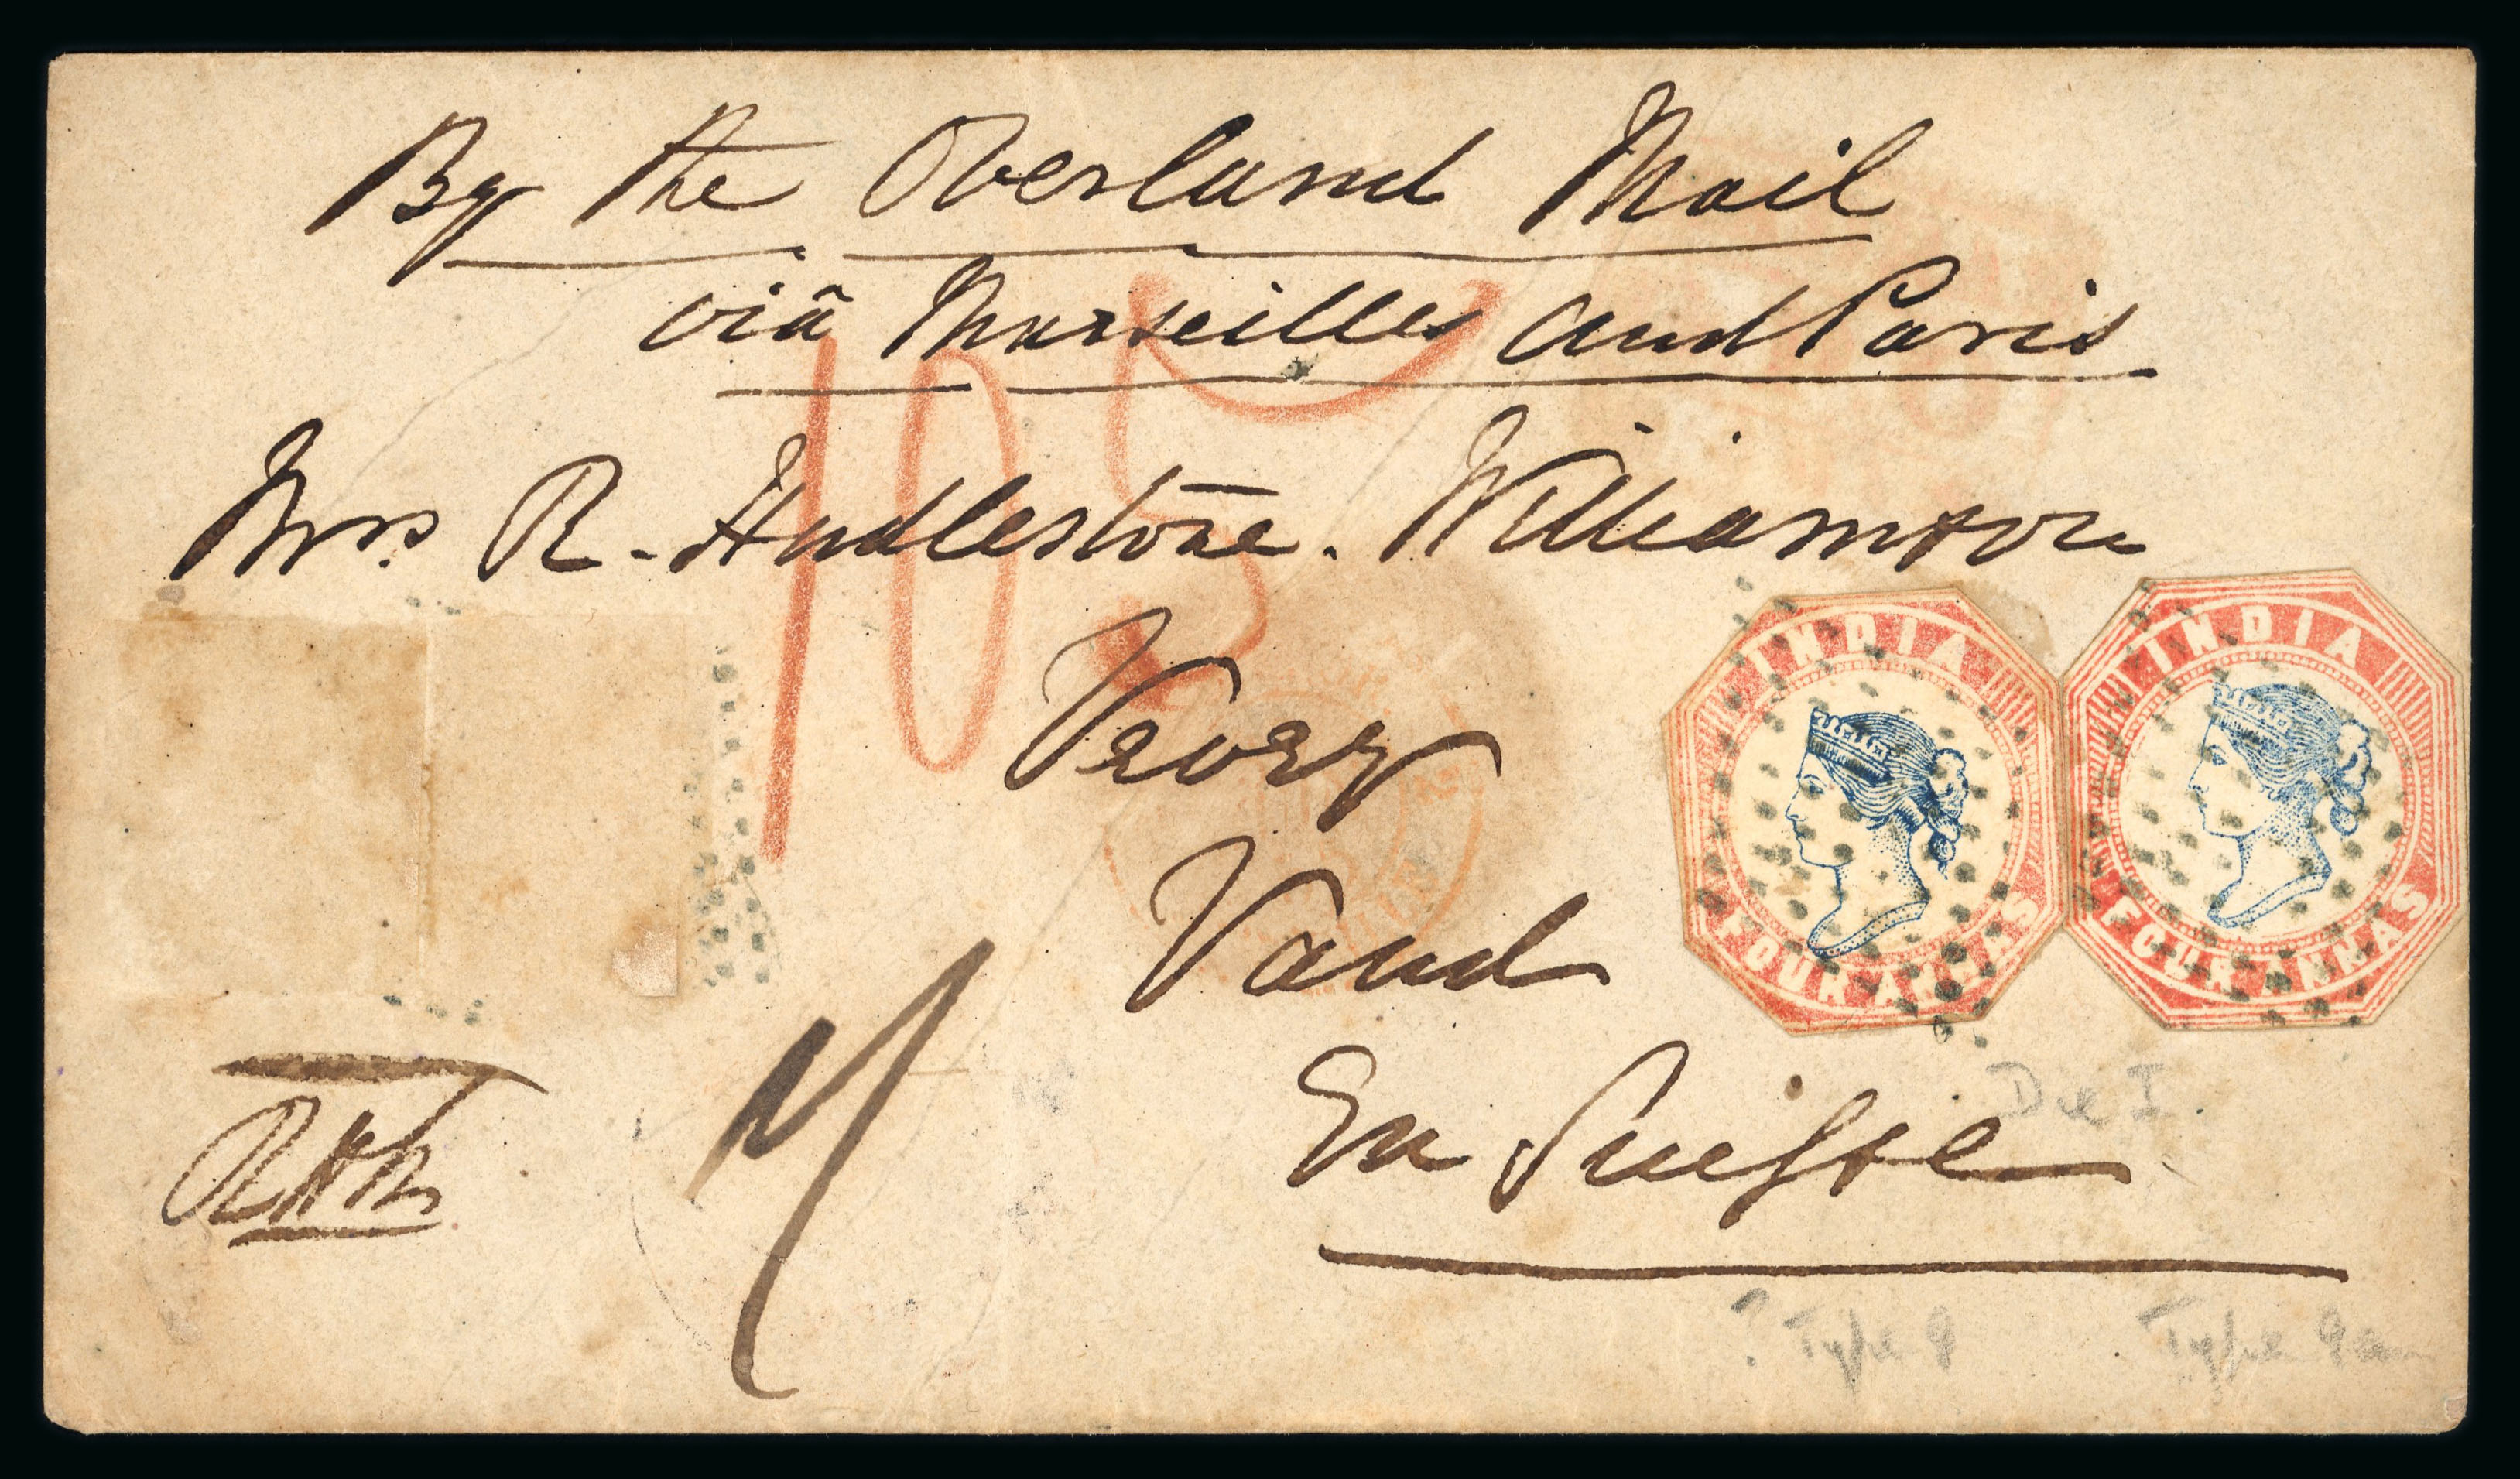 By the Overland Mail
viâ Marseilles and Paris
105
Mrs R. Hudlestone. Williamson
Vevey
Vaud
En Suisse
INDIA
FOUR ANNAS
INDIA
FOUR ANNAS
Die I.
? Type 9
Type 9a